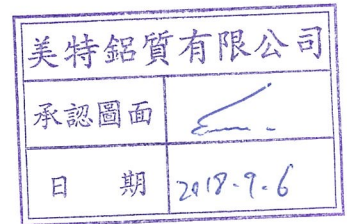 美特鋁質有限公司
承認圖面
日期 2018.9.6